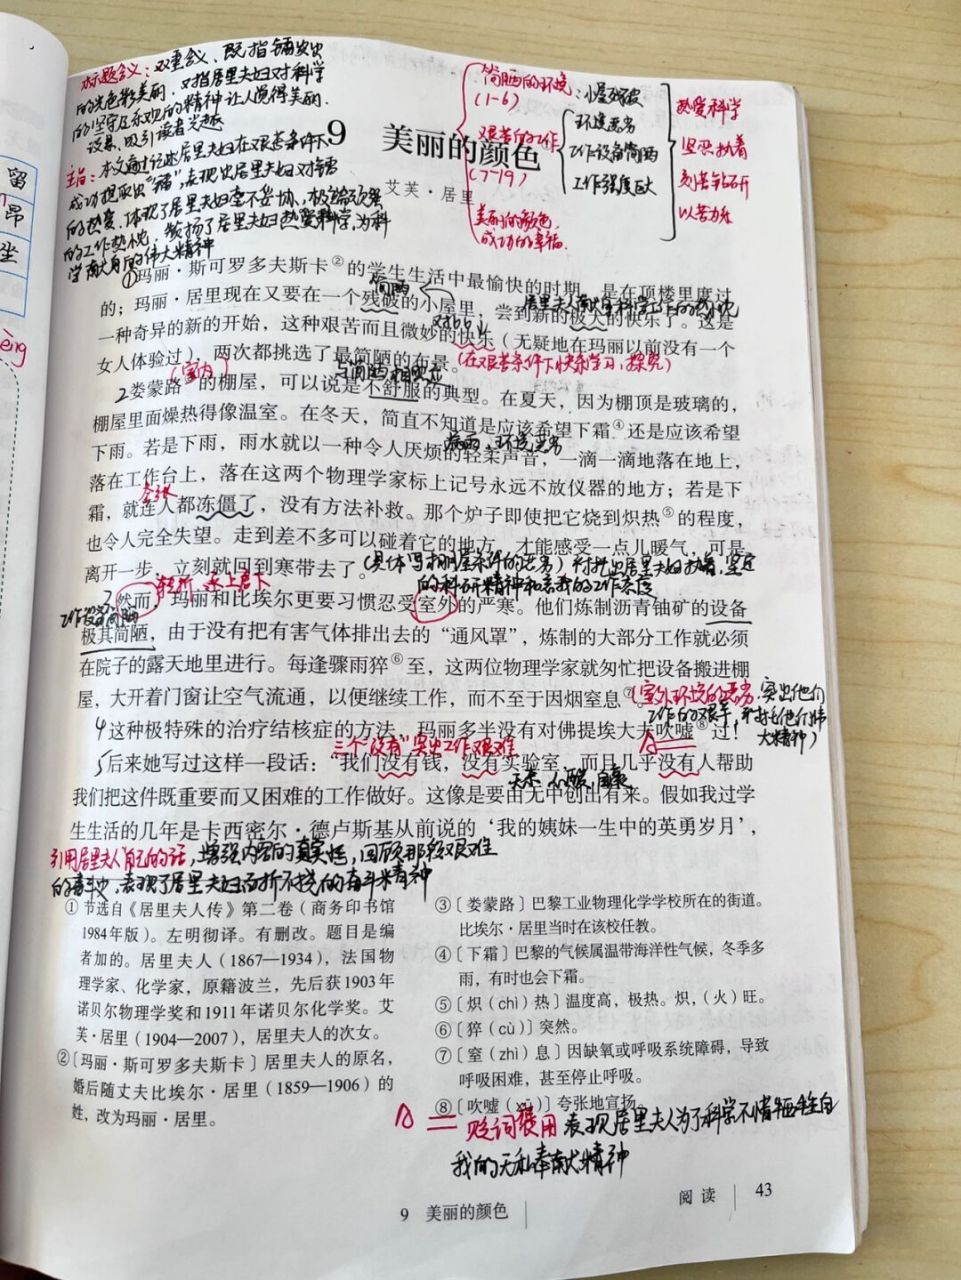 标题含义：双重含义、既指镭发出
的光色彩美丽，又指居里夫妇对科学
的坚守及乐观的精神让人觉得美丽．
设悬、吸引读者兴趣
主旨：本文通过记述居里夫妇在艰苦条件下
成功提取出“镭”，表现出居里夫妇对镭
的热爱，体现了居里夫妇毫不妥协、
的工作热忱，赞扬了居里夫妇热爱科学，为科
学献身的伟大精神
简陋的环境
(1-6)
艰苦的工作
(7-19)
美丽的颜色，
成功的幸福．
小屋残破
环境恶劣
工作设备简陋
工作强度巨大
热爱科学
坚忍执着
刻苦钻研
以苦为乐
9 美丽的颜色
艾芙·居里
①玛丽·斯可罗多夫斯卡②的学生生活中最愉快的时期，是在顶楼里度过
简陋
的；玛丽·居里现在又要在一个残破的小屋里，尝到新的极大的快乐了。这是
一种奇异的新的开始，这种艰苦而且微妙的快乐（无疑地在玛丽以前没有一个
女人体验过），两次都挑选了最简陋的布景。
(在艰苦条件下快乐学习、探究)
(室内)
2娄蒙路③的棚屋，可以说是不舒服的典型。在夏天，因为棚顶是玻璃的，
棚屋里面燥热得像温室。在冬天，简直不知道是应该希望下霜④还是应该希望
下雨。若是下雨，雨水就以一种令人厌烦的轻柔声音，一滴一滴地落在地上，
落在工作台上，落在这两个物理学家标上记号永远不放仪器的地方；若是下
霜，就连人都冻僵了，没有方法补救。那个炉子即使把它烧到炽热⑤的程度，
也令人完全失望。走到差不多可以碰着它的地方，才能感受一点儿暖气，可是
离开一步，立刻就回到寒带去了。
(具体写棚屋条件的恶劣）衬托出居里夫妇执着、坚定
的科研精神和忘我的工作态度
转折、承上启下
工作设备简陋
然而，玛丽和比埃尔更要习惯忍受室外的严寒。他们炼制沥青铀矿的设备
极其简陋，由于没有把有害气体排出去的“通风罩”，炼制的大部分工作就必须
在院子的露天地里进行。每逢骤雨猝⑥至，这两位物理学家就匆忙把设备搬进棚
屋，大开着门窗让空气流通，以便继续工作，而不至于因烟窒息⑦。
(室外环境的恶劣 突出他们
工作的艰辛，衬托他们伟
大精神）
4这种极特殊的治疗结核症的方法，玛丽多半没有对佛提埃大夫吹嘘⑧过！
三个“没有”突出工作艰难
5后来她写过这样一段话：“我们没有钱，没有实验室，而且几乎没有人帮助
我们把这件既重要而又困难的工作做好。这像是要由无中创出有来。假如我过学
生生活的几年是卡西密尔·德卢斯基从前说的‘我的姨妹一生中的英勇岁月’，
引用居里夫人自己的话，增强内容的真实性，回顾那段艰难
的奋斗史，表现了居里夫妇百折不挠的奋斗精神
① 节选自《居里夫人传》第二卷（商务印书馆
1984年版）。左明彻译。有删改。题目是编
者加的。居里夫人（1867—1934），法国物
理学家、化学家，原籍波兰，先后获1903年
诺贝尔物理学奖和1911年诺贝尔化学奖。艾
芙·居里（1904—2007），居里夫人的次女。
②〔玛丽·斯可罗多夫斯卡〕居里夫人的原名，
婚后随丈夫比埃尔·居里（1859—1906）的
姓，改为玛丽·居里。
③〔娄蒙路〕巴黎工业物理化学学校所在的街道。
比埃尔·居里当时在该校任教。
④〔下霜〕巴黎的气候属温带海洋性气候，冬季多
雨，有时也会下霜。
⑤〔炽（chì）热〕温度高，极热。炽，（火）旺。
⑥〔猝（cù）〕突然。
⑦〔窒（zhì）息〕因缺氧或呼吸系统障碍，导致
呼吸困难，甚至停止呼吸。
⑧〔吹嘘（xū）〕夸张地宣扬。
贬词褒用 表现居里夫人为了科学不惜牺牲自
我的无私奉献精神
9 美丽的颜色
阅读 43